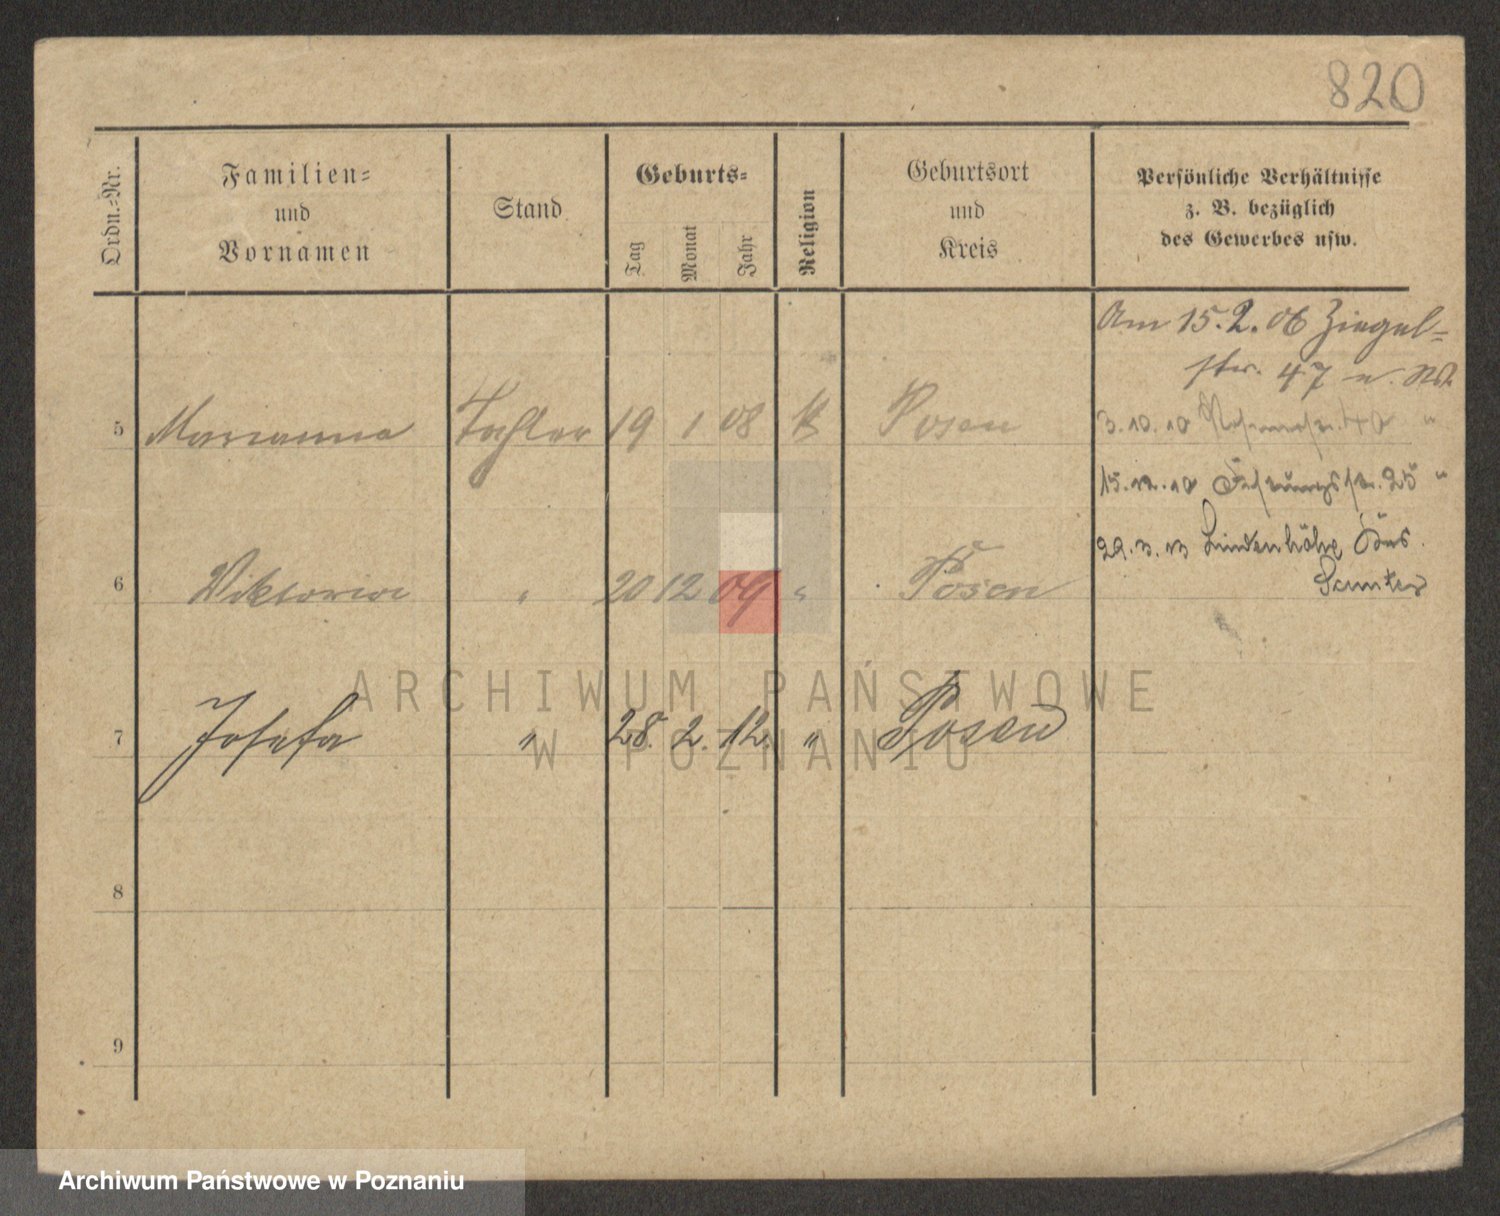 820
Ordn.-Nr.
Familien-
und
Vornamen
Stand
Geburts-
Tag
Monat
Jahr
Religion
Geburtsort
und
Kreis
Persönliche Verhältnisse
z. B. bezüglich
des Gewerbes usw.
Am 15.2.06 Ziegel-
str. 47 n.
5 Marianna Tochter 19 1 08 K Posen
3.10.10 40 "
15.12.10 25 "
29.3.13 Lindenhöhe Krs.
Samter
6 Viktoria " 20 12 09 " Posen
7 Josefa " 28. 2. 12. " Posen
8
9
ARCHIWUM PAŃSTWOWE
W POZNANIU
Archiwum Państwowe w Poznaniu